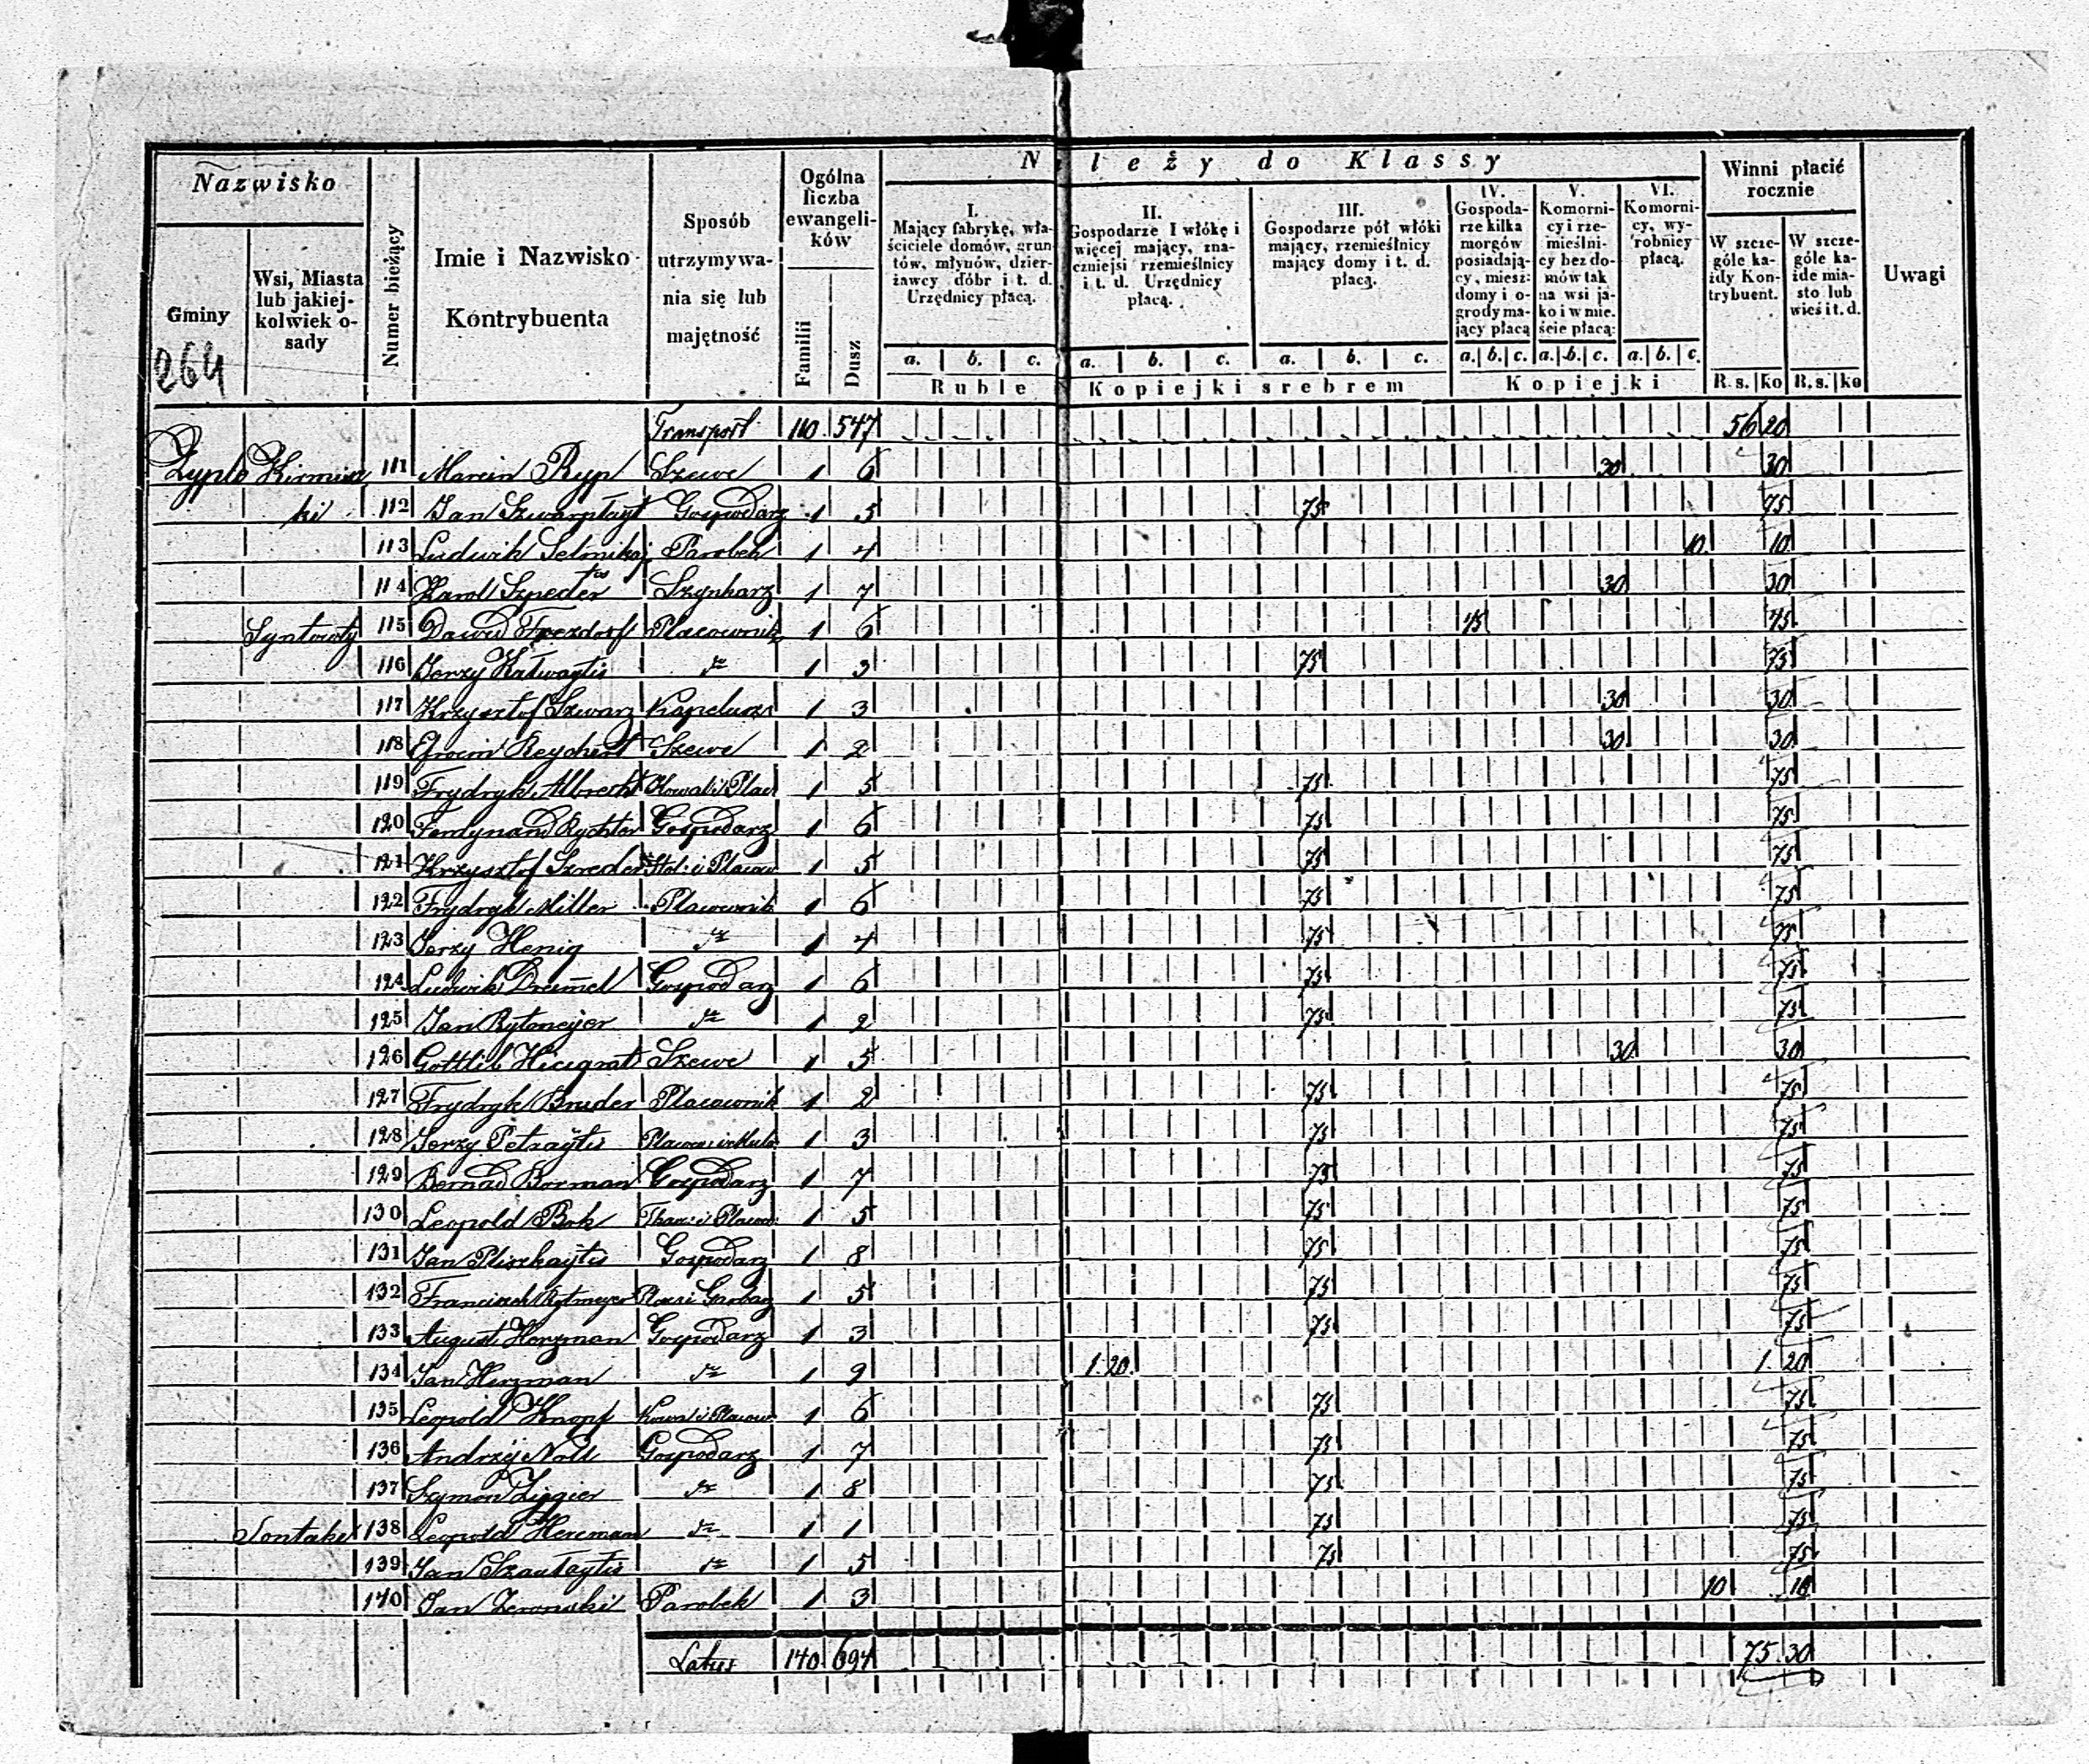 Nazwisko
Gminy
Wsi, Miasta lub jakiej-kolwiek o-sady
Numer bieżący
Imie i Nazwisko Kontrybuenta
Sposób utrzymywa-nia się lub majętność
Ogólna liczba ewangeli-ków
Familii
Dusz
Należy do Klassy
I. Mający fabrykę, wła-ściciele domów, grun-tów, młynów, dzier-żawcy dóbr i t. d. Urzędnicy płacą.
II. Gospodarze I włókę i więcej mający, zna-czniejsi rzemieślnicy i t. d. Urzędnicy płacą.
III. Gospodarze pół włóki mający, rzemieślnicy mający domy i t. d. płacą.
IV. Gospoda-rze kilka morgów posiadają-cy, miesz: domy i o-grody ma-jący płacą
V. Komorni-cy i rze-mieślni-cy bez do-mów tak na wsi ja-ko i w mie-ście płacą:
VI. Komorni-cy, wy-robnicy płacą.
Winni płacić rocznie
W szcze-góle ka-żdy Kon-trybuent.
W szcze-góle ka-żde mia-sto lub wieś i t. d.
Uwagi
a. b. c. a. b. c. a. b. c. a. b. c. a. b. c. a. b. c.
Ruble Kopiejki srebrem Kopiejki R. s. ko R. s. ko
264
Transport 110 547 56 20
Zyple Kirmisz 111 Marcin Ryp Szewc 1 6 30 30
ki 112 Jan Szwarpłayt Gospodarz 1 5 75 75
113 Ludwik Selmikaj Parobek 1 4 10 10
114 Karol Szpeder Szynkarz 1 7 30 30
Syntowty 115 Dawid Frezdorf Placownik 1 6 45 45
116 Jerzy Katwaytis 1 3 75 75
117 Krzysztof Szwarz Kapelusz 1 3 30 30
118 Reychert Szewc 1 2 30 30
119 Frydryk Albrecht Kowal i Plac 1 5 75 75
120 Ferdynand Rychter Gospodarz 1 6 75 75
121 Krzysztof Szreder Stol: i Placow 1 5 75 75
122 Frydryk Miller Placownik 1 6 75 75
123 Jerzy Henig 1 4 75 75
124 Ludwik Dremel Gospodarz 1 6 75 75
125 Jan Rytmeijer 1 2 75 75
126 Gottlib Hicigrat Szewc 1 5 30 30
127 Frydryk Bruder Placownik 1 2 75 75
128 Jerzy Petraytis 1 3 75 75
129 Bernad Borman Gospodarz 1 7 75 75
130 Leopold Bok Tkacz i Placow: 1 5 75 75
131 Jan Pliszkaytis Gospodarz 1 8 75 75
132 Franciszek Rytmeyer Plac: i Garbarz 1 5 75 75
133 August Herzman Gospodarz 1 3 75 75
134 Jan Herzman 1 9 1.20 1 20
135 Leopold Knopf Kowal i Placow 1 6 75 75
136 Andrzej Noll Gospodarz 1 7 75 75
137 Symon Ziggier 1 8 75 75
Sontaki 138 Leopold Hercman 1 1 75 75
139 Jan Szautaytis 1 5 75 75
140 Jan Zeronski Parobek 1 3 10 10
Latus 140 694 75.30